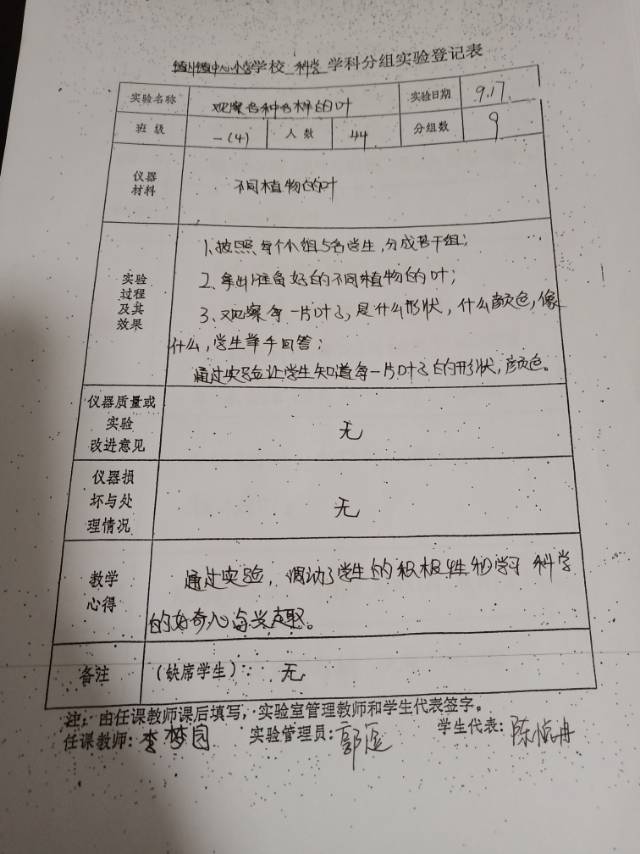 镇中心小学校 科学 学科分组实验登记表
实验名称 观察各种各样的叶 实验日期 9.17
班级 一(4) 人数 44 分组数 9
仪器材料 不同植物的叶
实验过程及其效果
1、按照每个小组5名学生,分成若干组;
2、拿出准备好的不同植物的叶;
3、观察每一片叶子,是什么形状,什么颜色,像
什么,学生举手回答;
通过实验让学生知道每一片叶子的形状,颜色。
仪器质量或实验改进意见 无
仪器损坏与处理情况 无
教学心得
通过实验,调动了学生的积极性和学习科学
的好奇心与兴趣。
备注 (缺席学生): 无
注:由任课教师课后填写,实验室管理教师和学生代表签字。
任课教师:李梦园 实验管理员:郭 学生代表:陈